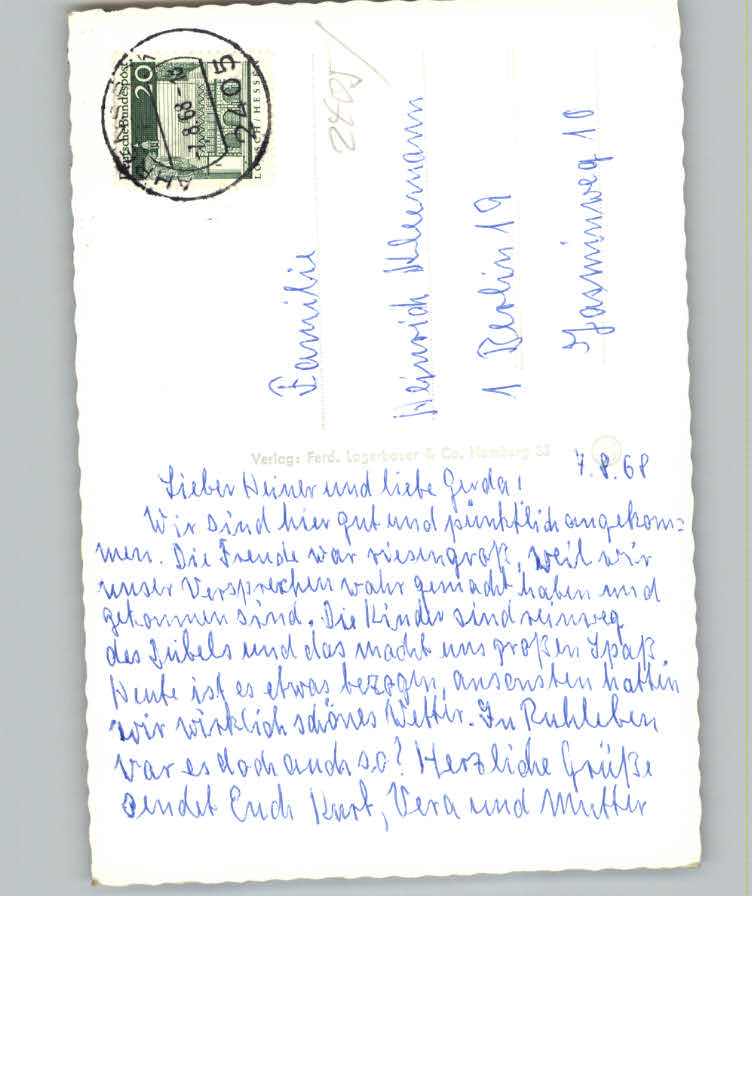 Deutsche Bundespost
20
LORSCH/HESSEN
AHR
-7.8.68-12
2405
2405
Familie
Heinrich Kleemann
1 Berlin 19
Jasminweg 10
Verlag: Ferd. Lagerbauer & Co. Hamburg 33
7.8.68
Lieber Heiner und liebe Gerda!
Wir sind hier gut und pünktlich angekom=
men. Die Freude war riesengroß, weil wir
unser Versprechen wahr gemacht haben und
gekommen sind. Die Kinder sind reinweg
des Jubels und das macht uns großen Spaß
Heute ist es etwas bezogen, ansonsten hatten
wir wirklich schönes Wetter. In Ruhleben
war es doch auch so? Herzliche Grüße
sendet Euch Kurt, Vera und Mutter